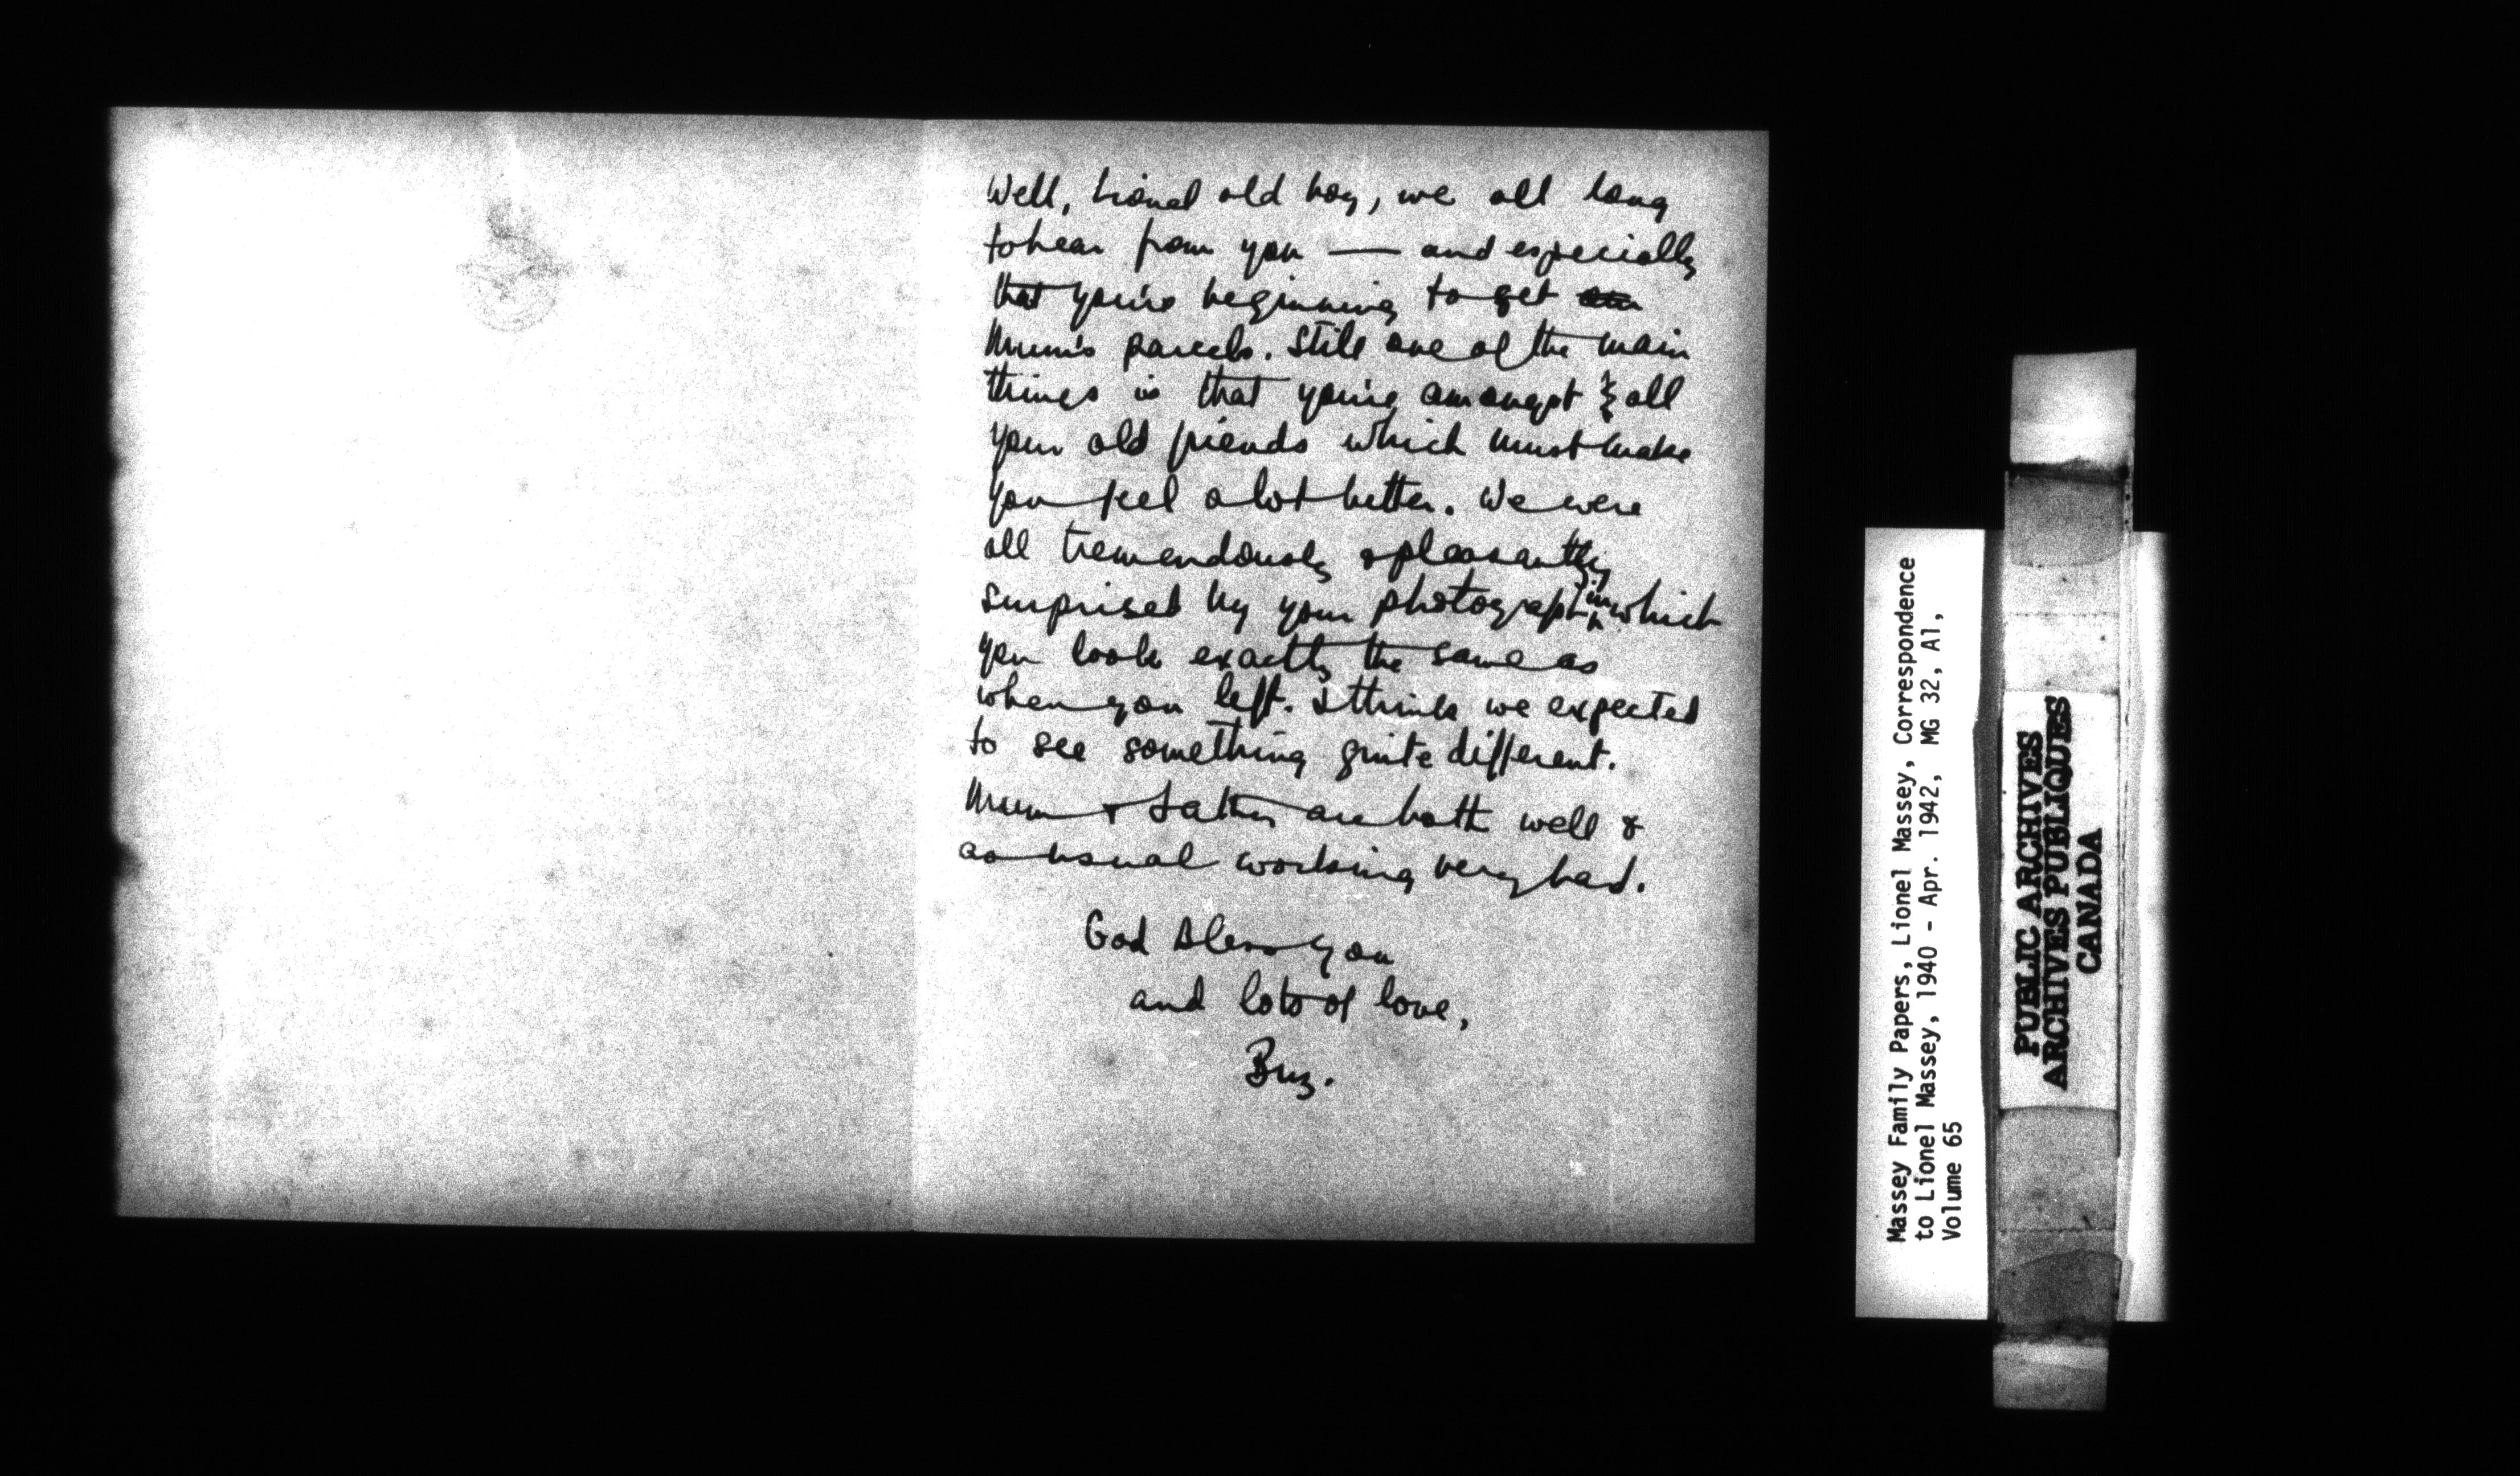 Well, Lionel old boy, we all long
to hear from you — and especially
that you're beginning to get
Mum's parcels. Still one of the main
things is that you're amongst all
your old friends which must make
you feel a lot better. We were
all tremendously & pleasantly
surprised by your photograph in which
you look exactly the same as
when you left. I think we expected
to see something quite different.
Mum & Father are both well &
as usual working very hard.
God Bless you
and lots of love,
Buz.
Massey Family Papers, Lionel Massey, Correspondence
to Lionel Massey, 1940 - Apr. 1942, MG 32, A1,
Volume 65
PUBLIC ARCHIVES
ARCHIVES PUBLIQUES
CANADA